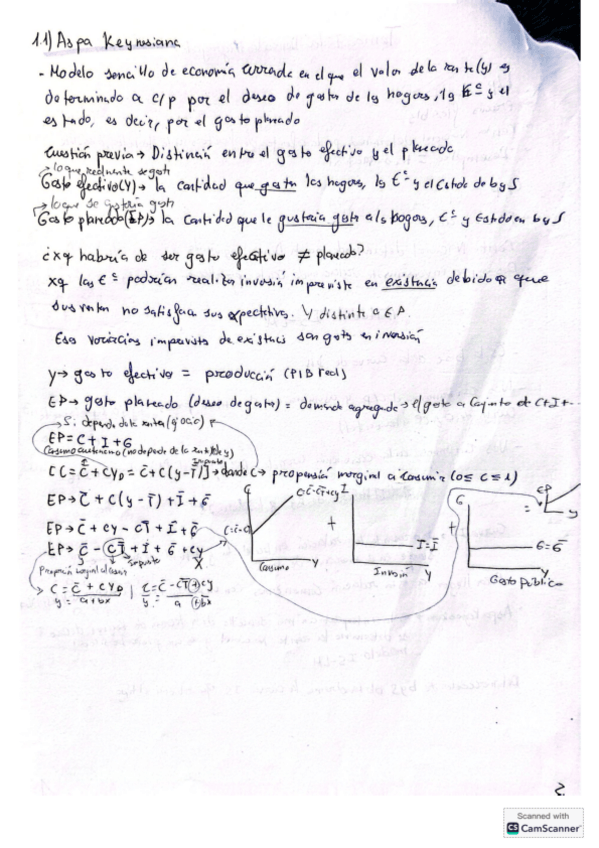 1.1) Aspa Keynesiana
- Modelo sencillo de economía cerrada en el que el valor de la renta (y) es
determinado a c/p por el deseo de gastar de los hogares, las Eˢ y el
estado, es decir, por el gasto planeado
Cuestión previa → Distinción entre el gasto efectivo y el planeado
lo que realmente se gasta
Gasto efectivo (Y) → la cantidad que gastan los hogares, las Eˢ y el Estado de b y S
lo que se gustaría gastar
Gasto planeado (EP) → la cantidad que le gustaría gastar a los hogares, Eˢ y Estado en b y S
¿xq habría de ser gasto efectivo ≠ planeado?
xq las Eˢ podrían realizar inversión imprevista en existencias debido a que
sus ventas no satisfagan sus expectativas. Y distinto a EP.
Esas variaciones imprevistas de existencias son gasto en inversión
y → gasto efectivo = producción (PIB real)
EP → gasto planeado (deseo de gastar) = demanda agregada → el gasto conjunto de C+I+...
Si depende de la renta
EP = C + I + G
Consumo autónomo (no depende de la renta y)
impuesto
C = C̄ + CY_D = C̄ + C(y - T̄) → donde c → propensión marginal a consumir (0 ≤ C ≤ 1)
EP → C̄ + C(y - T̄) + Ī + Ḡ
EP → C̄ + cy - cT̄ + Ī + Ḡ
EP → C̄ - cT̄ + Ī + Ḡ + cy
impuesto
X
C = C̄ + CY_D | C = C̄ - cT̄ + cy
y = a + bx | y = a + bx
C
C = C̄ - cT̄ + cy
Y
Consumo
+
I
I = Ī
Y
Inversión
+
G
G = Ḡ
Y
Gasto público
=
EP
y
2.
Scanned with
CS CamScanner